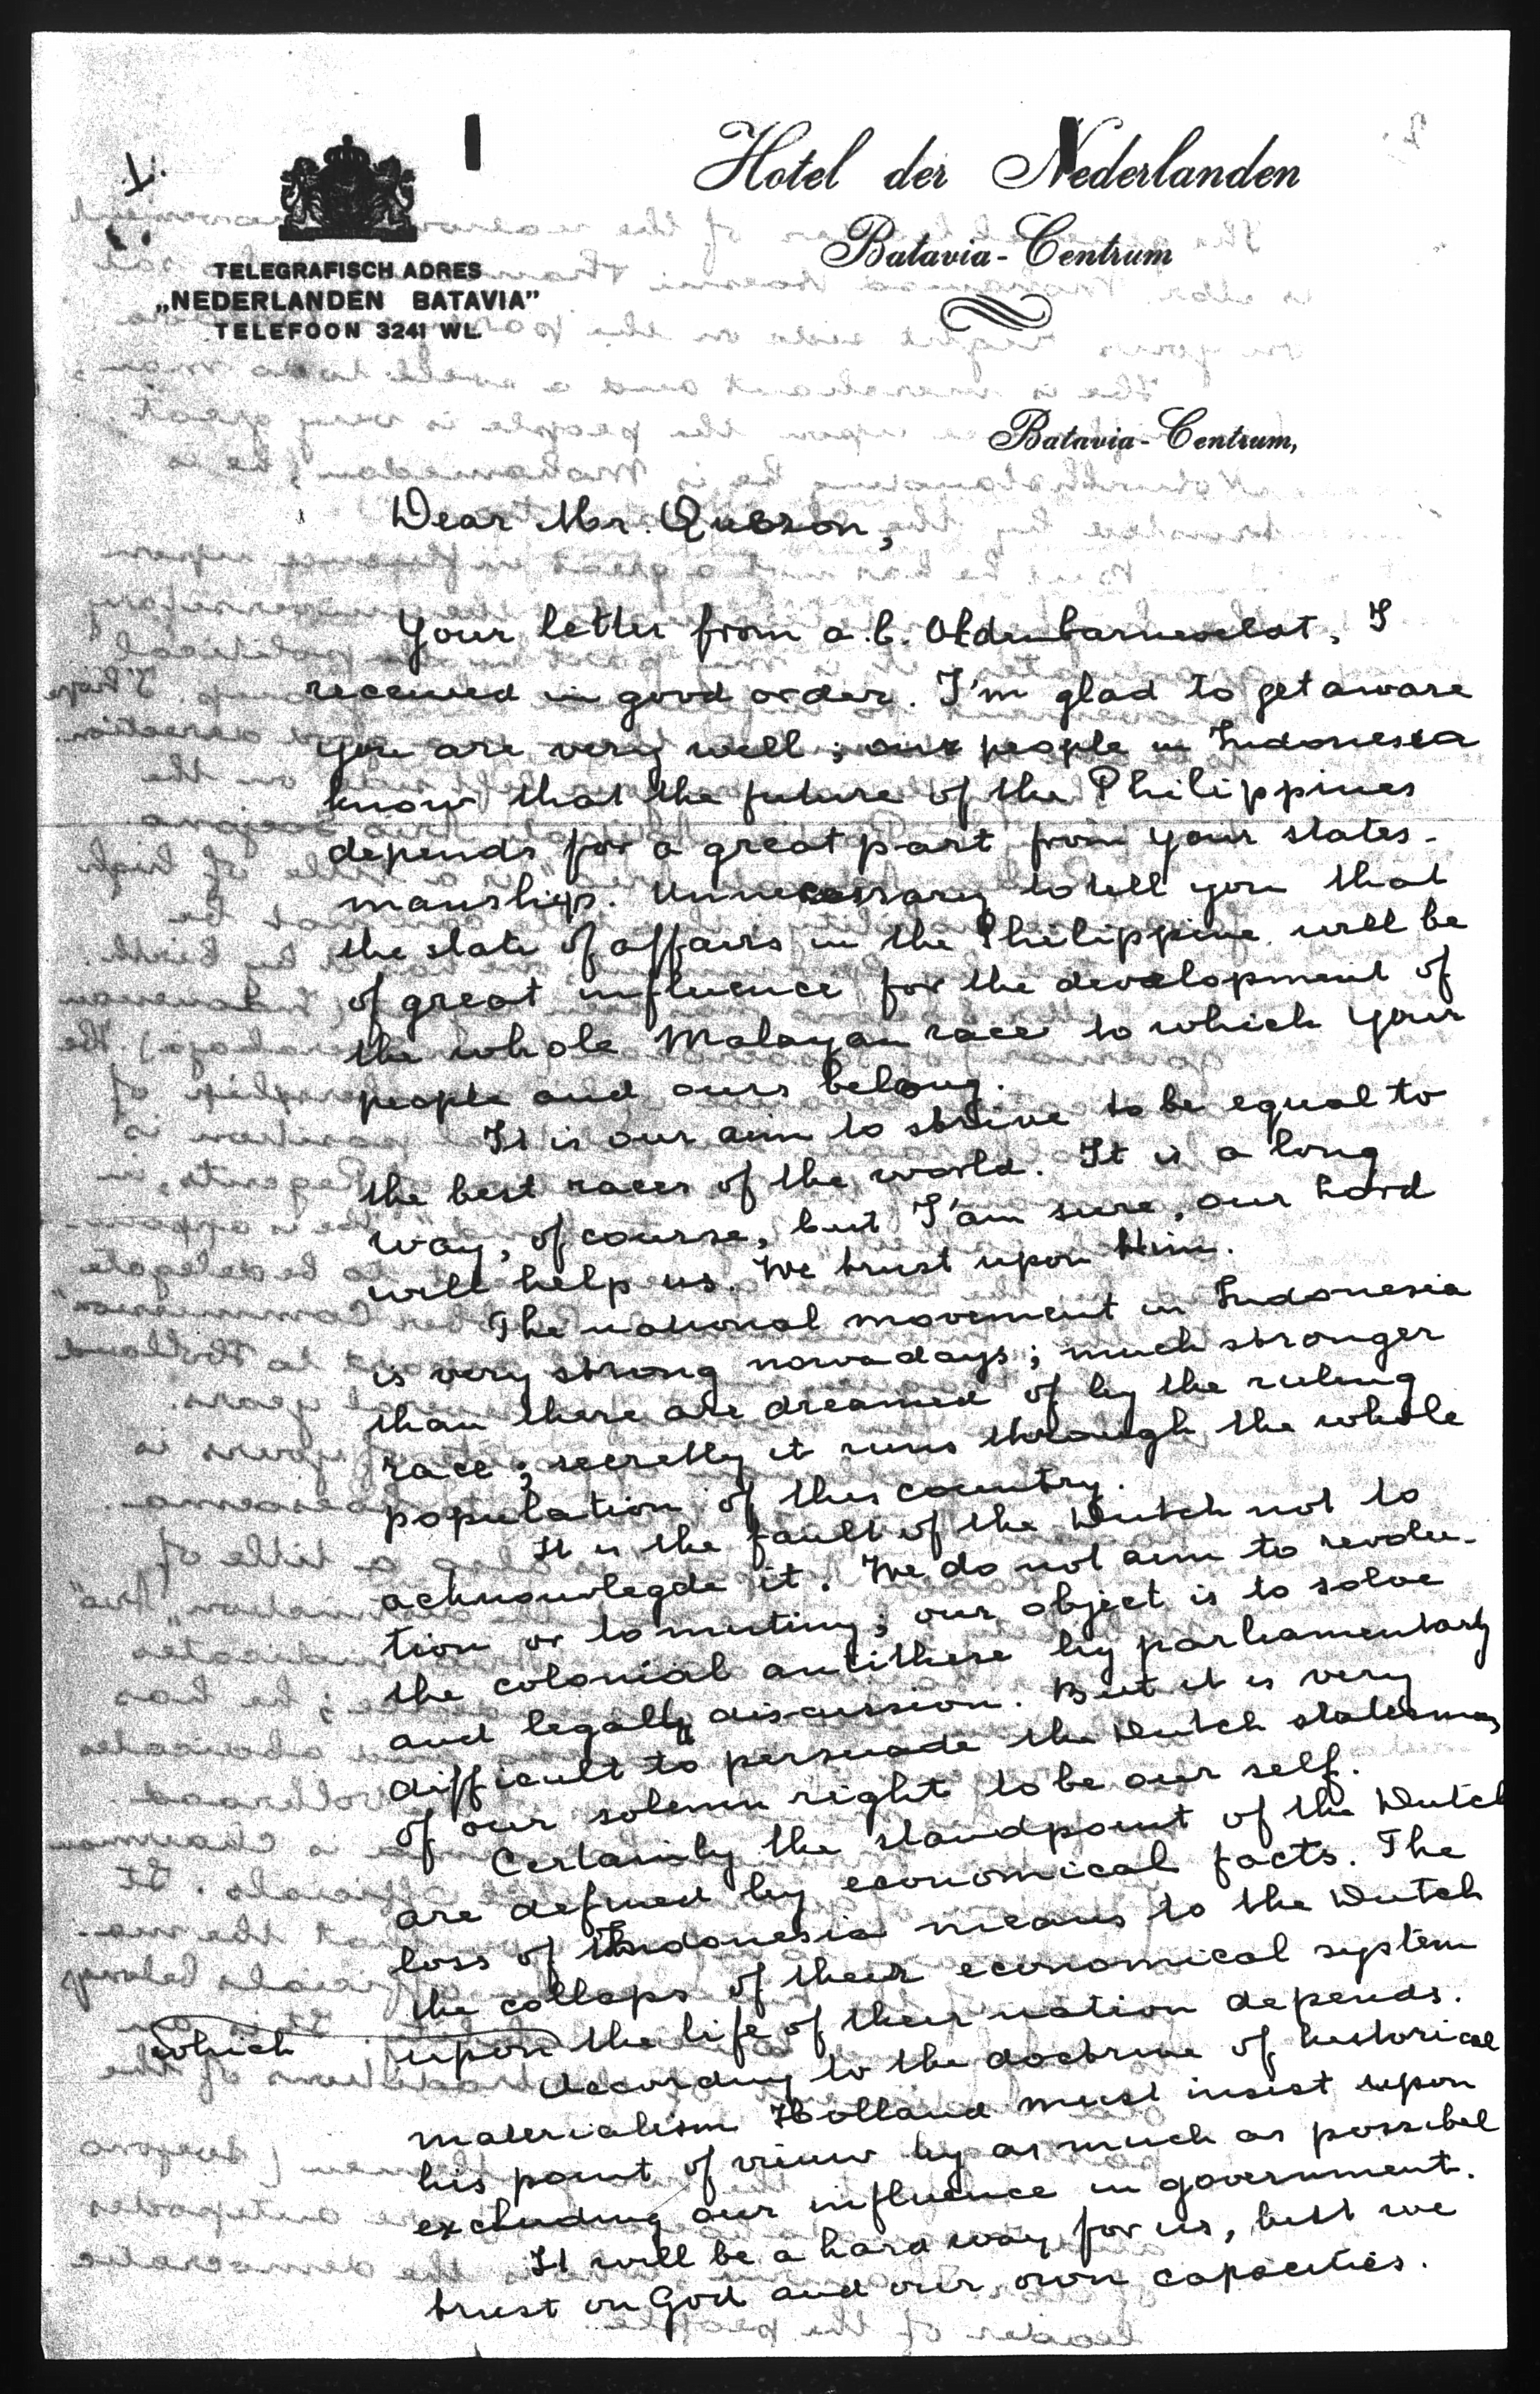 1.
Hotel der Nederlanden
Batavia-Centrum
TELEGRAFISCH ADRES
„NEDERLANDEN BATAVIA”
TELEFOON 3241 WL.
Batavia-Centrum,
Dear Mr. Quezon,
Your letter from a.b. Oldenbarnevelat, I
received in good order. I'm glad to get aware
you are very well; our people in Indonesia
know that the future of the Philippines
depends for a great part from your states-
manship. Unnecessary to tell you that
the state of affairs in the Philippine will be
of great influence for the development of
the whole Malayan race to which your
people and ours belong.
It is our aim to strive to be equal to
the best races of the world. It is a long
way, of course, but I'am sure, our Lord
will help us. We trust upon Him.
The national movement in Indonesia
is very strong nowadays; much stronger
than there are dreamed of by the ruling
race; secretly it runs through the whole
population of this country.
It is the fault of the Dutch not to
acknowlegde it. We do not aim to revolu-
tion or to mutiny; our object is to solve
the colonial antithese by parliamentary
and legally discussion. But it is very
difficult to persuade the Dutch statesman
of our solemn right to be our self.
Certainly the standpoint of the Dutch
are defined by economical facts. The
loss of Indonesia means to the Dutch
the collaps of their economical system
which upon the life of their nation depends.
According to the doctrine of historical
materialism Holland must insist upon
his point of vieuw by as much as possibel
excluding our influence in government.
It will be a hard way for us, but we
trust on God and our own capacities.